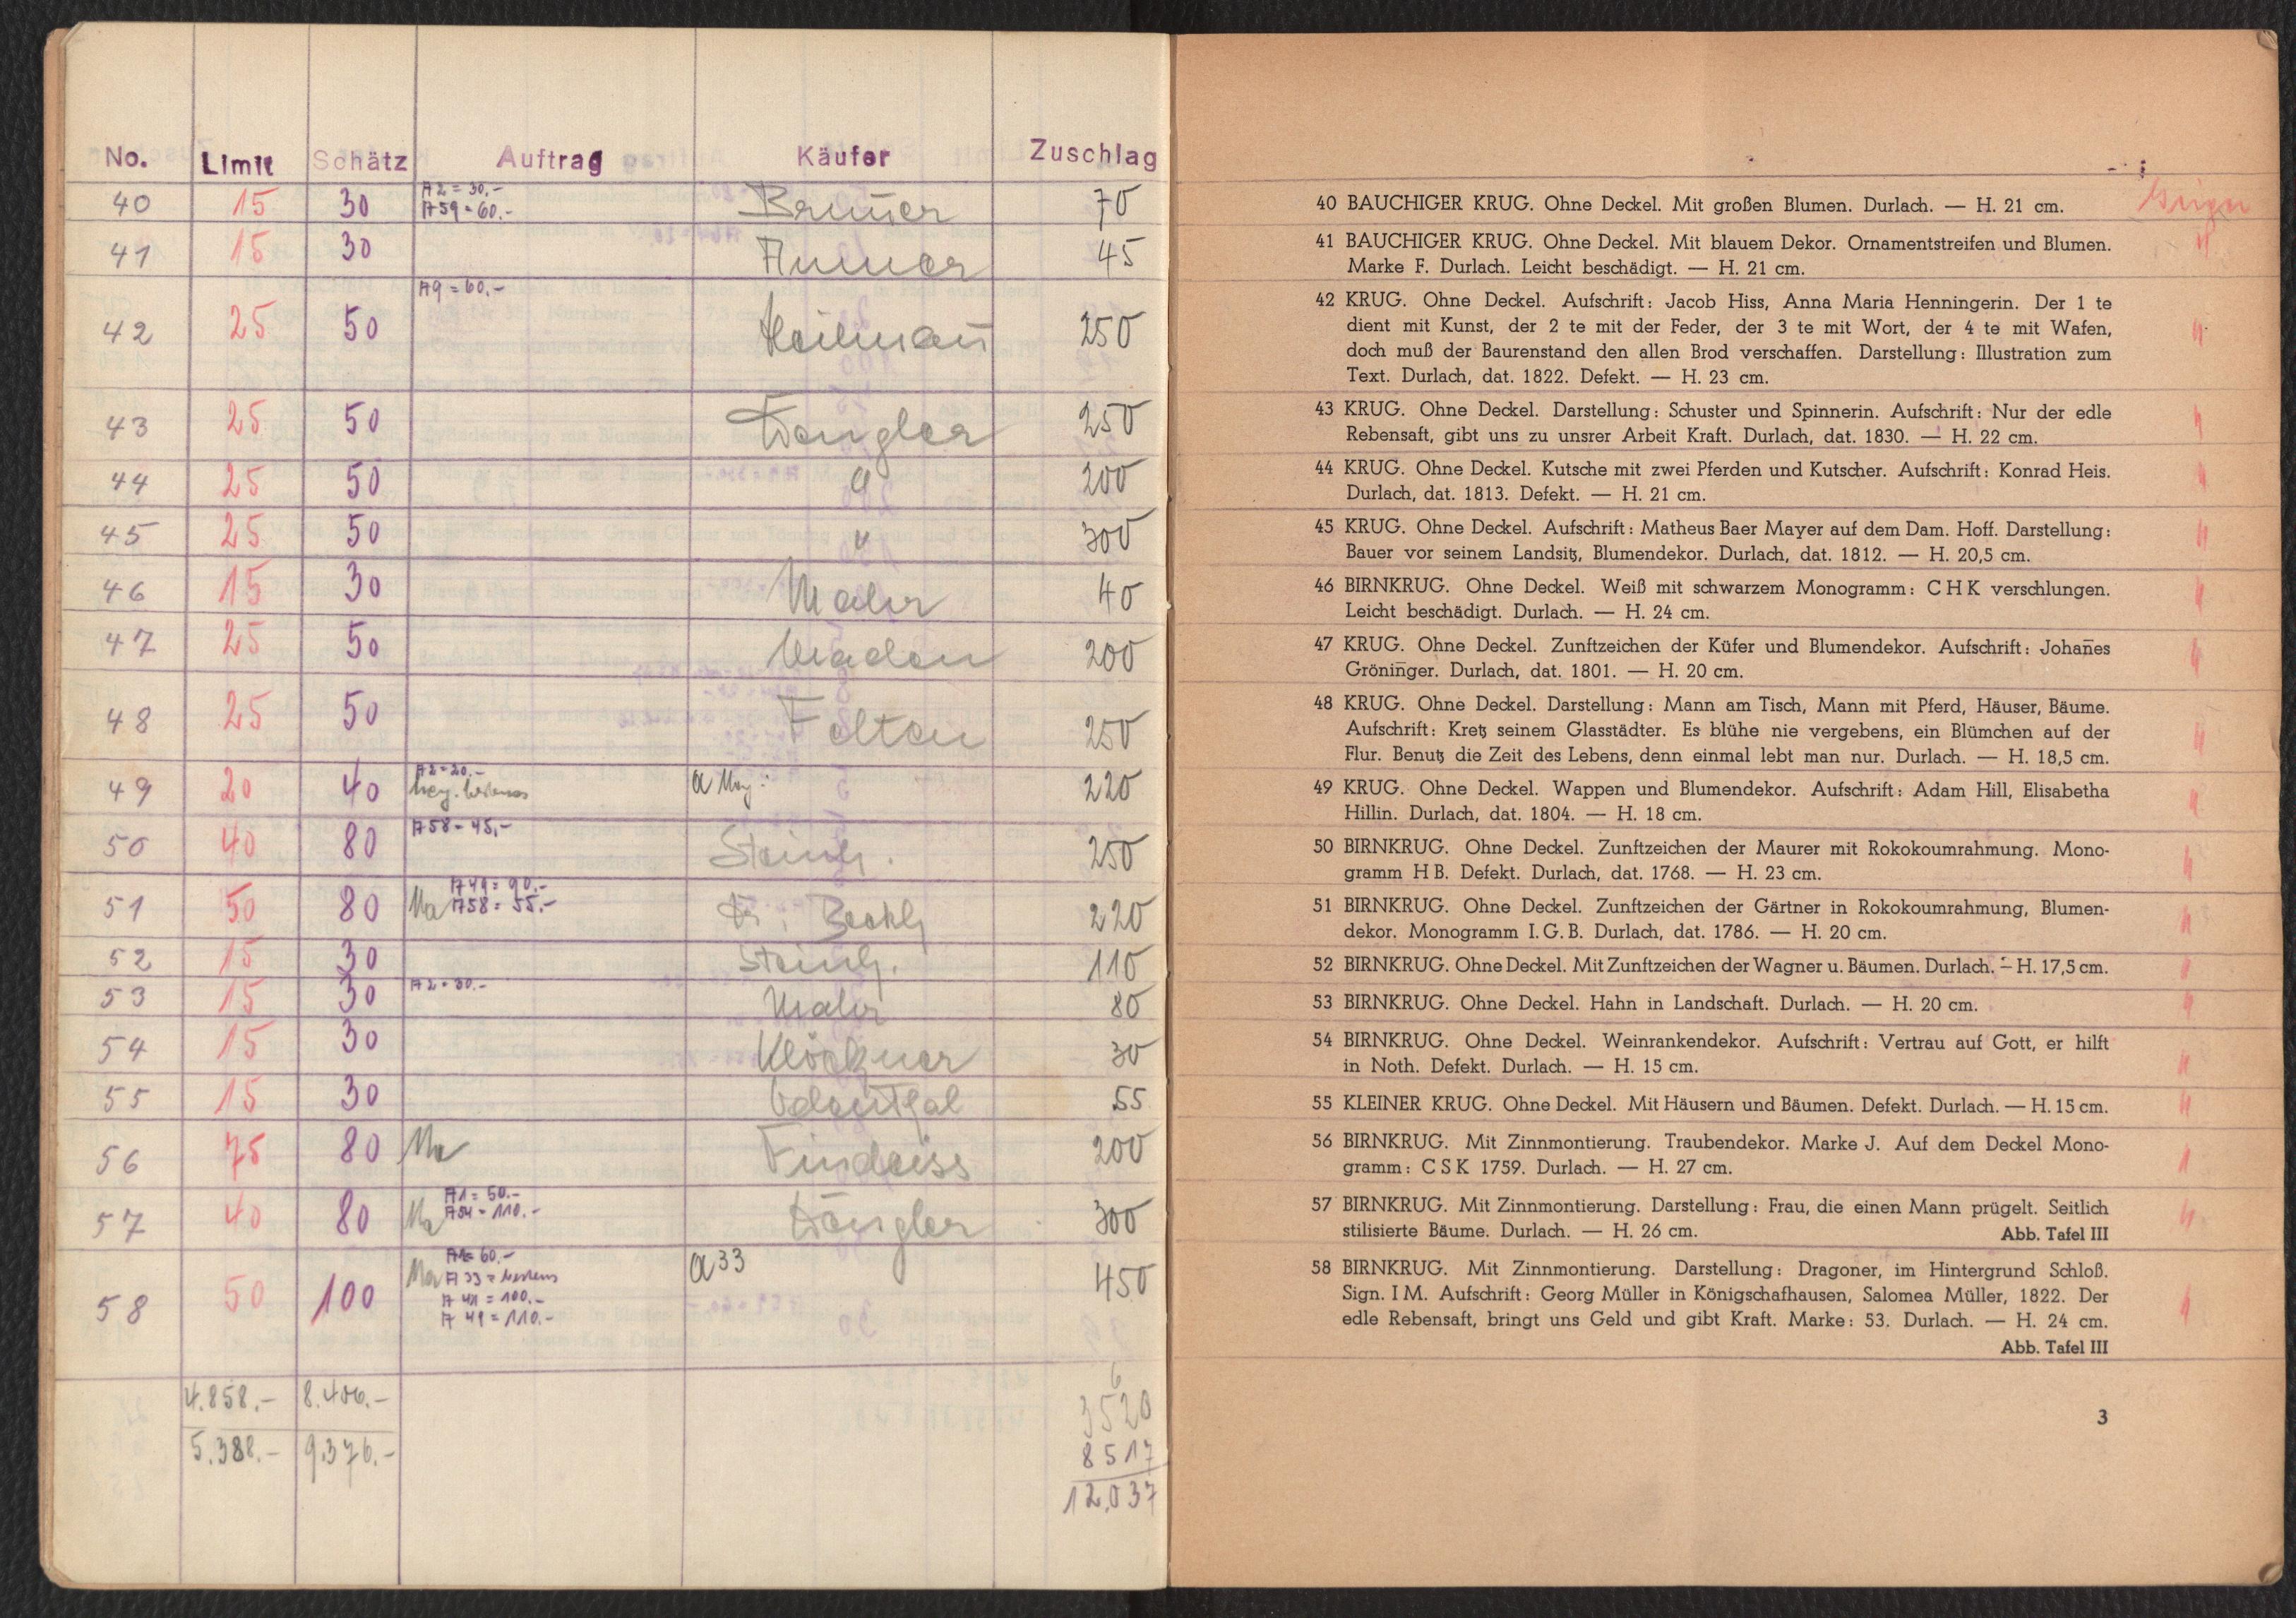 No. Limit Schätz Auftrag Käufer Zuschlag
40 15 30 A2 = 30.- A59 = 60.- Brunner 70
41 15 30 45
42 25 50 A9 = 60.- Heilmann 250
43 25 50 Dengler 250
44 25 50 " 200
45 25 50 " 300
46 15 30 Mahr 40
47 25 50 200
48 25 50 Felten 250
49 20 40 A2 = 20.- 220
50 40 80 A58 = 45,- 250
51 50 80 Ma A49 = 90.- A58 = 55.- 220
52 15 30 110
53 15 30 A2 = 30.- Mahr 80
54 15 30 Klöckner 30
55 15 30 55
56 75 80 Ma Findeiss 200
57 40 80 Ma A1 = 50.- A54 = 110.- Dengler 300
58 50 100 Ma 60.- A33 = bestens = 100.- A 49 = 110.- A33 450
4.858.- 8.406.- 3520
5.388.- 9.376.- 8517
12.037
40 BAUCHIGER KRUG. Ohne Deckel. Mit großen Blumen. Durlach. — H. 21 cm.
41 BAUCHIGER KRUG. Ohne Deckel. Mit blauem Dekor. Ornamentstreifen und Blumen. "
Marke F. Durlach. Leicht beschädigt. — H. 21 cm.
42 KRUG. Ohne Deckel. Aufschrift: Jacob Hiss, Anna Maria Henningerin. Der 1 te
dient mit Kunst, der 2 te mit der Feder, der 3 te mit Wort, der 4 te mit Wafen, "
doch muß der Baurenstand den allen Brod verschaffen. Darstellung: Illustration zum
Text. Durlach, dat. 1822. Defekt. — H. 23 cm.
43 KRUG. Ohne Deckel. Darstellung: Schuster und Spinnerin. Aufschrift: Nur der edle "
Rebensaft, gibt uns zu unsrer Arbeit Kraft. Durlach, dat. 1830. — H. 22 cm.
44 KRUG. Ohne Deckel. Kutsche mit zwei Pferden und Kutscher. Aufschrift: Konrad Heis. "
Durlach, dat. 1813. Defekt. — H. 21 cm.
45 KRUG. Ohne Deckel. Aufschrift: Matheus Baer Mayer auf dem Dam. Hoff. Darstellung: "
Bauer vor seinem Landsitz, Blumendekor. Durlach, dat. 1812. — H. 20,5 cm.
46 BIRNKRUG. Ohne Deckel. Weiß mit schwarzem Monogramm: C H K verschlungen. "
Leicht beschädigt. Durlach. — H. 24 cm.
47 KRUG. Ohne Deckel. Zunftzeichen der Küfer und Blumendekor. Aufschrift: Johan̄es "
Grönin̄ger. Durlach, dat. 1801. — H. 20 cm.
48 KRUG. Ohne Deckel. Darstellung: Mann am Tisch, Mann mit Pferd, Häuser, Bäume.
Aufschrift: Kretz seinem Glasstädter. Es blühe nie vergebens, ein Blümchen auf der "
Flur. Benutz die Zeit des Lebens, denn einmal lebt man nur. Durlach. — H. 18,5 cm.
49 KRUG. Ohne Deckel. Wappen und Blumendekor. Aufschrift: Adam Hill, Elisabetha "
Hillin. Durlach, dat. 1804. — H. 18 cm.
50 BIRNKRUG. Ohne Deckel. Zunftzeichen der Maurer mit Rokokoumrahmung. Mono- "
gramm H B. Defekt. Durlach, dat. 1768. — H. 23 cm.
51 BIRNKRUG. Ohne Deckel. Zunftzeichen der Gärtner in Rokokoumrahmung, Blumen- "
dekor. Monogramm I. G. B. Durlach, dat. 1786. — H. 20 cm.
52 BIRNKRUG. Ohne Deckel. Mit Zunftzeichen der Wagner u. Bäumen. Durlach. — H. 17,5 cm. "
53 BIRNKRUG. Ohne Deckel. Hahn in Landschaft. Durlach. — H. 20 cm. "
54 BIRNKRUG. Ohne Deckel. Weinrankendekor. Aufschrift: Vertrau auf Gott, er hilft
in Noth. Defekt. Durlach. — H. 15 cm. "
55 KLEINER KRUG. Ohne Deckel. Mit Häusern und Bäumen. Defekt. Durlach. — H. 15 cm. "
56 BIRNKRUG. Mit Zinnmontierung. Traubendekor. Marke J. Auf dem Deckel Mono-
gramm: C S K 1759. Durlach. — H. 27 cm. "
57 BIRNKRUG. Mit Zinnmontierung. Darstellung: Frau, die einen Mann prügelt. Seitlich "
stilisierte Bäume. Durlach. — H. 26 cm. Abb. Tafel III
58 BIRNKRUG. Mit Zinnmontierung. Darstellung: Dragoner, im Hintergrund Schloß.
Sign. I M. Aufschrift: Georg Müller in Königschafhausen, Salomea Müller, 1822. Der "
edle Rebensaft, bringt uns Geld und gibt Kraft. Marke: 53. Durlach. — H. 24 cm.
Abb. Tafel III
3